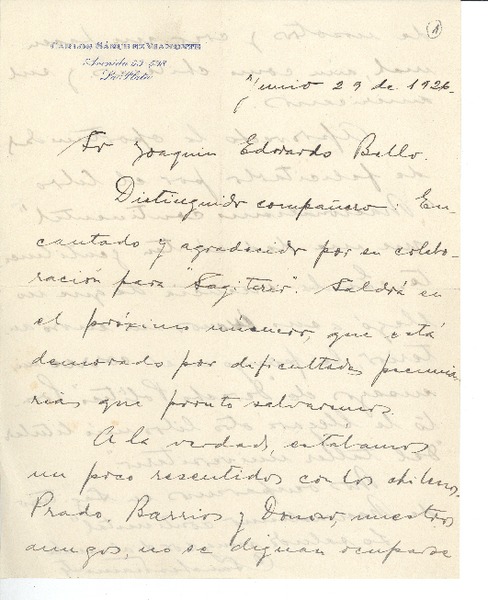 CARLOS SÁNCHEZ VIAMONTE
Avenida 53 - 598
La Plata
Junio 29 de 1926.
Sr Joaquin Edwards Bello.
Distinguido compañero: En-
cantado y agradecido por su colabo-
ración para "Sagitario". Saldrá en
el próximo número, que está
demorado por dificultades pecunia-
rias que pronto salvaremos.
A la verdad, estabamos
un poco resentidos con los chilenos.
Prado, Barrios y Donoso, nuestros
amigos, no se dignan ocuparse